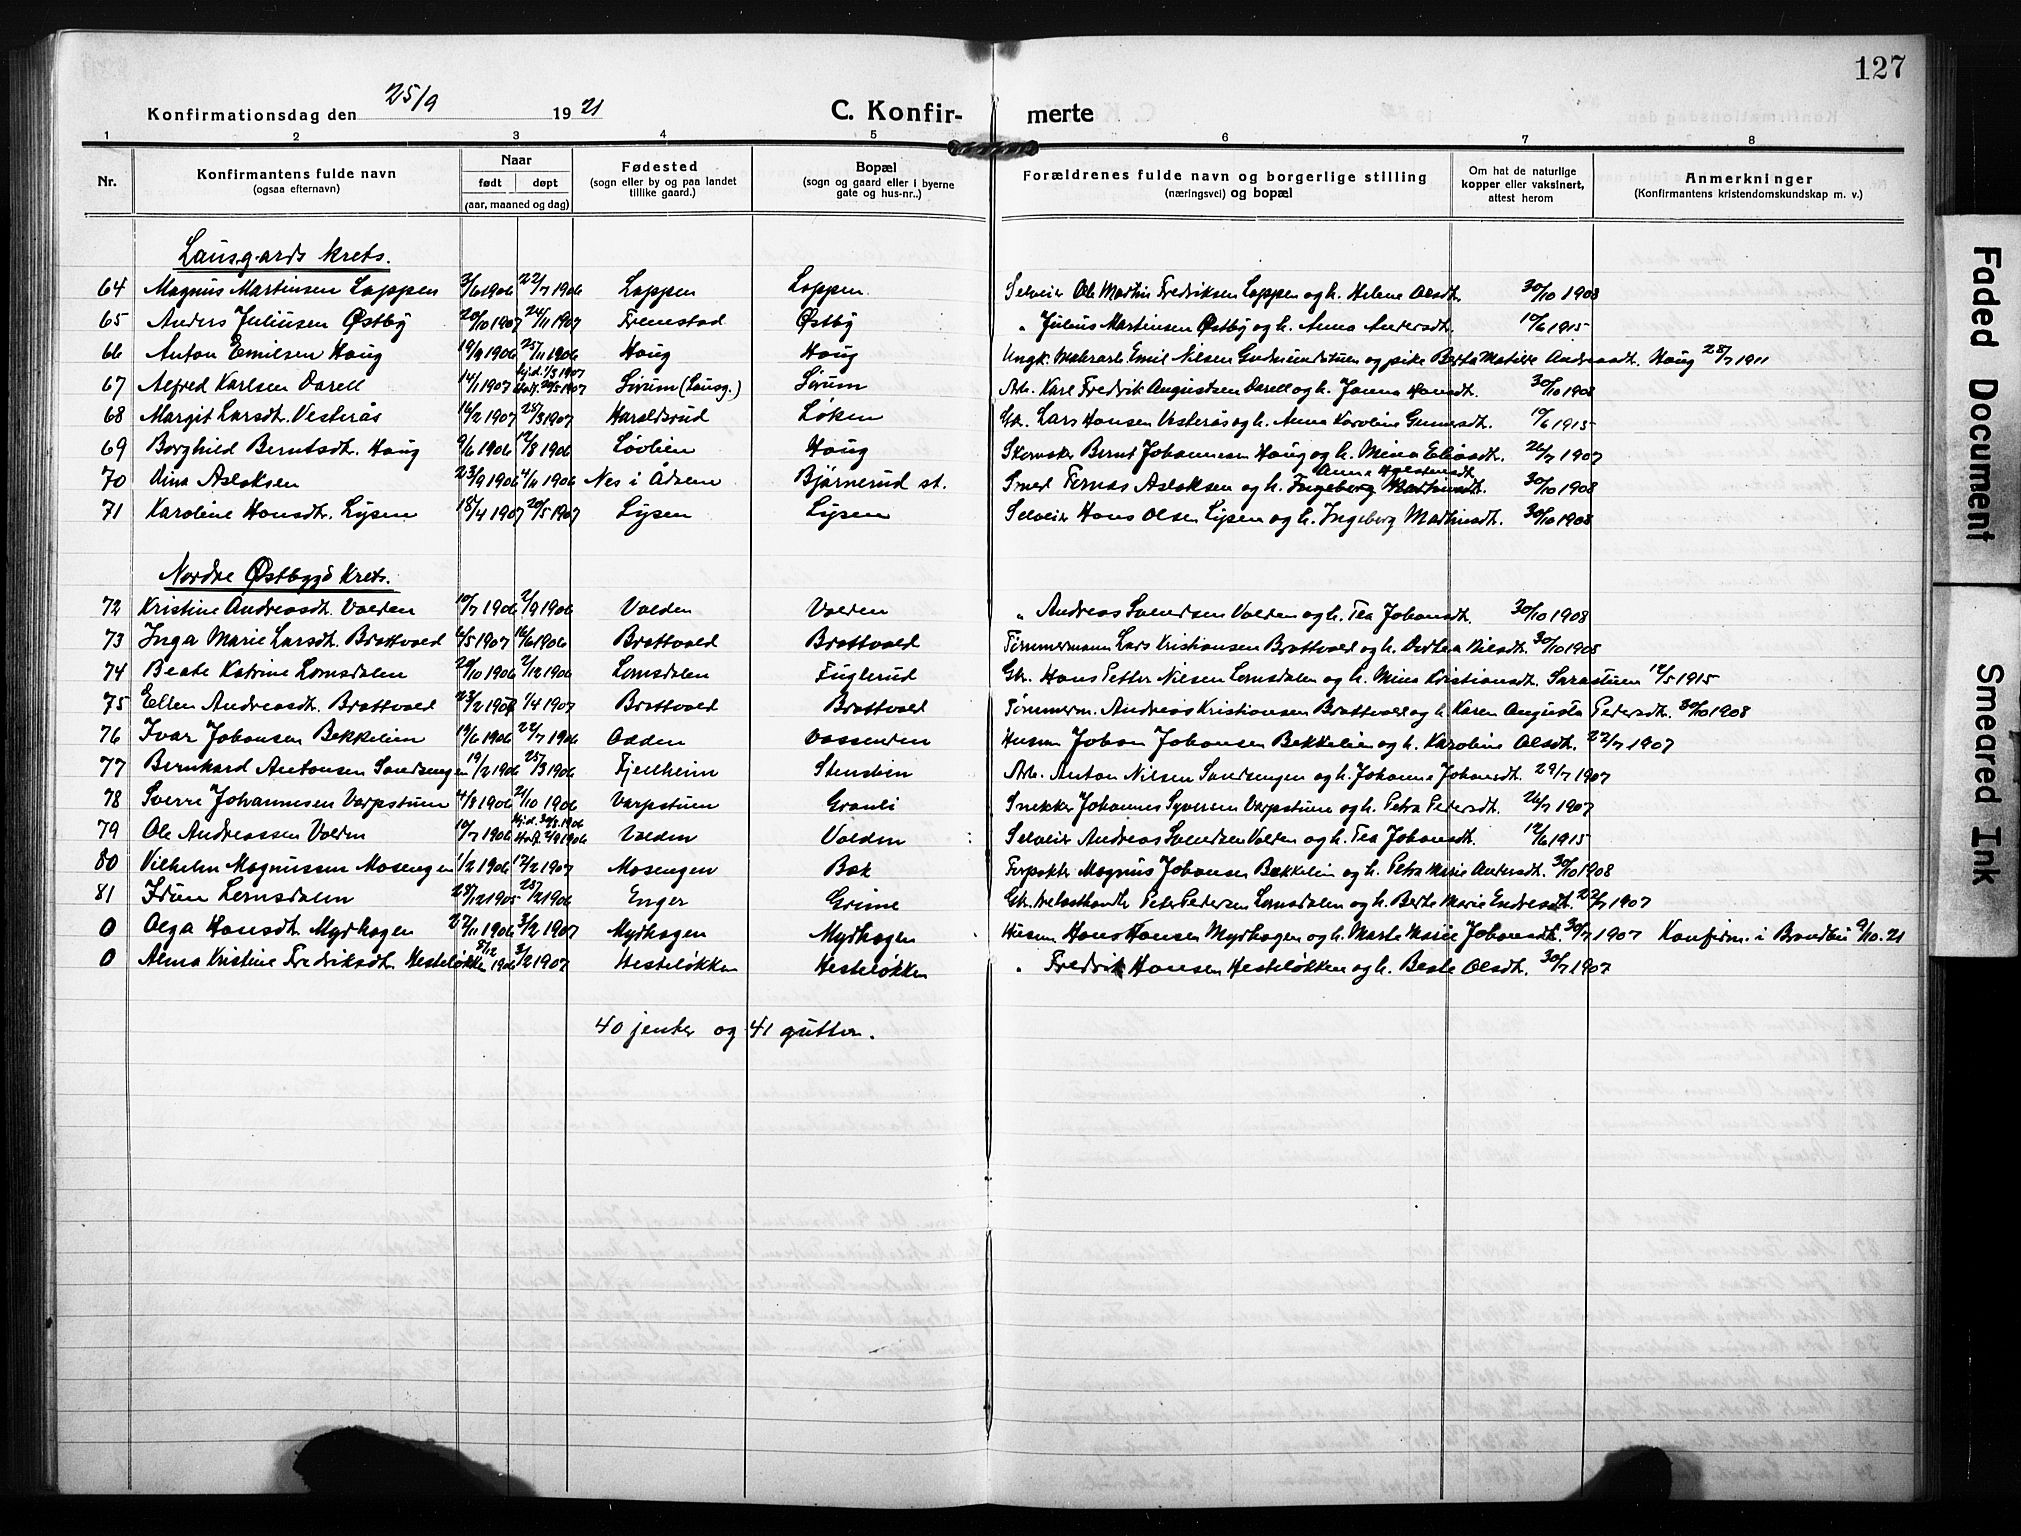 127
Konfirmationsdag den 25/9 1921 C. Konfir- merte
1 2 3 4 5 6 7 8
Nr. Konfirmantens fulde navn (ogsaa efternavn) Naar født døpt (aar, maaned og dag) Fødested (sogn eller by og paa landet tillike gaard.) Bopæl (sogn og gaard eller i byerne gate og hus-nr.) Forældrenes fulde navn og borgerlige stilling (næringsvei) og bopæl Om hat de naturlige kopper eller vaksinert, attest herom Anmerkninger (Konfirmantens kristendomskundskap m. v.)
Lausgards krets.
64 Magnus Martinsen Loppen 3/6 1906 22/7 1906 Loppen Loppen Selveier Ole Martin Fredriksen Loppen og h. Helene Olsdt. 30/10 1908
65 Anders Juliusen Østby 20/10 1907 24/11 1907 Fremstad Østby " Julius Martinsen Østby og h. Anna Andersdt. 10/6 1915
66 Anton Emilsen Haug 19/9 1906 25/11 1906 Haug Haug Ungk. Emil Nilsen Gudmundstuen og pike Berta Matilde Andreasdt. Haug 28/7 1911
67 Alfred Karlsen Dorell 14/1 1907 hj.d. 1/3 1907 Sørum (Lausg.) Sørum Arb. Karl Fredrik Augustsen Dorell og h. Jonna Hansdt. 30/10 1908
68 Margit Larsdt. Vesterås 16/2 1907 28/3 1907 Haraldsrud Løken Gbr. Lars Hansen Vesterås og h. Anna Karoline Gunnersdt. 10/6 1915
69 Borghild Berntsdt. Haug 9/6 1906 12/8 1906 Løvlien Haug Skomaker Bernt Johannesen Haug og h. Mina Eliasdt. 26/7 1907
70 Dina Aslaksen 23/9 1906 4/11 1906 Nes i Ådalen Bjørnerud st. Smed Tomas Aslaksen og h. Ingeborg 30/10 1908
71 Karoline Hansdt. Lysen 18/4 1907 20/5 1907 Lysen Lysen Selveier Hans Olsen Lysen og h. Ingeborg Mathisdt. 30/10 1908
Nordre Østbygds krets.
72 Kristine Andreasdt. Volden 10/7 1906 2/9 1906 Volden Volden " Andreas Svendsen Volden og h. Tea Johansdt. 30/10 1908
73 Inga Marie Larsdt. Brattvold 6/5 1907 16/6 1906 Brattvold Brattvold Tømmermann Lars Kristiansen Brattvold og h. Dortea Nilsdt. 30/10 1908
74 Beate Katrine Lomsdalen 20/10 1906 2/12 1906 Lomsdalen Fuglerud Gbr. Hans Petter Nilsen Lomsdalen og h. Mina Kristiansdt. Sarastuen 12/5 1915
75 Ellen Andreasdt. Brattvold 23/2 1907 1/4 1907 Brattvold Brattvold Tømmerm. Andreas Kristiansen Brattvold og h. Karen Augusta Pedersdt. 30/10 1908
76 Ivar Johansen Bekkelien 19/6 1906 22/7 1906 Odden Vassenden Husm. Johan Johansen Bekkelien og h. Karoline Olsdt. 22/7 1907
77 Bernhard Antonsen Sandsengen 19/2 1906 25/3 1906 Fjellheim Stenslien Arb. Anton Nilsen Sandsengen og h. Johanne Johansdt. 29/7 1907
78 Sverre Johannesen Varpstuen 4/8 1906 21/10 1906 Varpstuen Granli Snekker Johannes Syversen Varpstuen og h. Petra Pedersdt. 26/7 1907
79 Ole Andreassen Volden 10/7 1906 hj.d. 2/9 1906 Volden Volden Selveier Andreas Svendsen Volden og h. Tea Johansdt. 12/6 1915
80 Vilhelm Magnussen Mosengen 1/2 1906 17/2 1907 Mosengen Bak Forpakter Magnus Johansen Bekkelien og h. Petra Marie Andersdt. 30/10 1908
81 Idun Lomsdalen 28/12 1905 25/2 1906 Enger Grime Gbr. Peder Pedersen Lomsdalen og h. Berte Marie Endresdt. 22/7 1907
0 Olga Hansdt. Myrhagen 27/11 1906 3/2 1907 Myrhagen Myrhagen Husm. Hans Hansen Myrhagen og h. Marte Marie Johansdt. 30/7 1907 Konfirm. i Brandbu 9/10.21
0 Alma Kristine Fredriksdt. Hesteløkken 5/12 1906 3/2 1907 Hesteløkken Hesteløkken " Fredrik Hansen Hesteløkken og h. Beate Olsdt. 30/7 1907
40 jenter og 41 gutter.
Faded Document
Smeared Ink